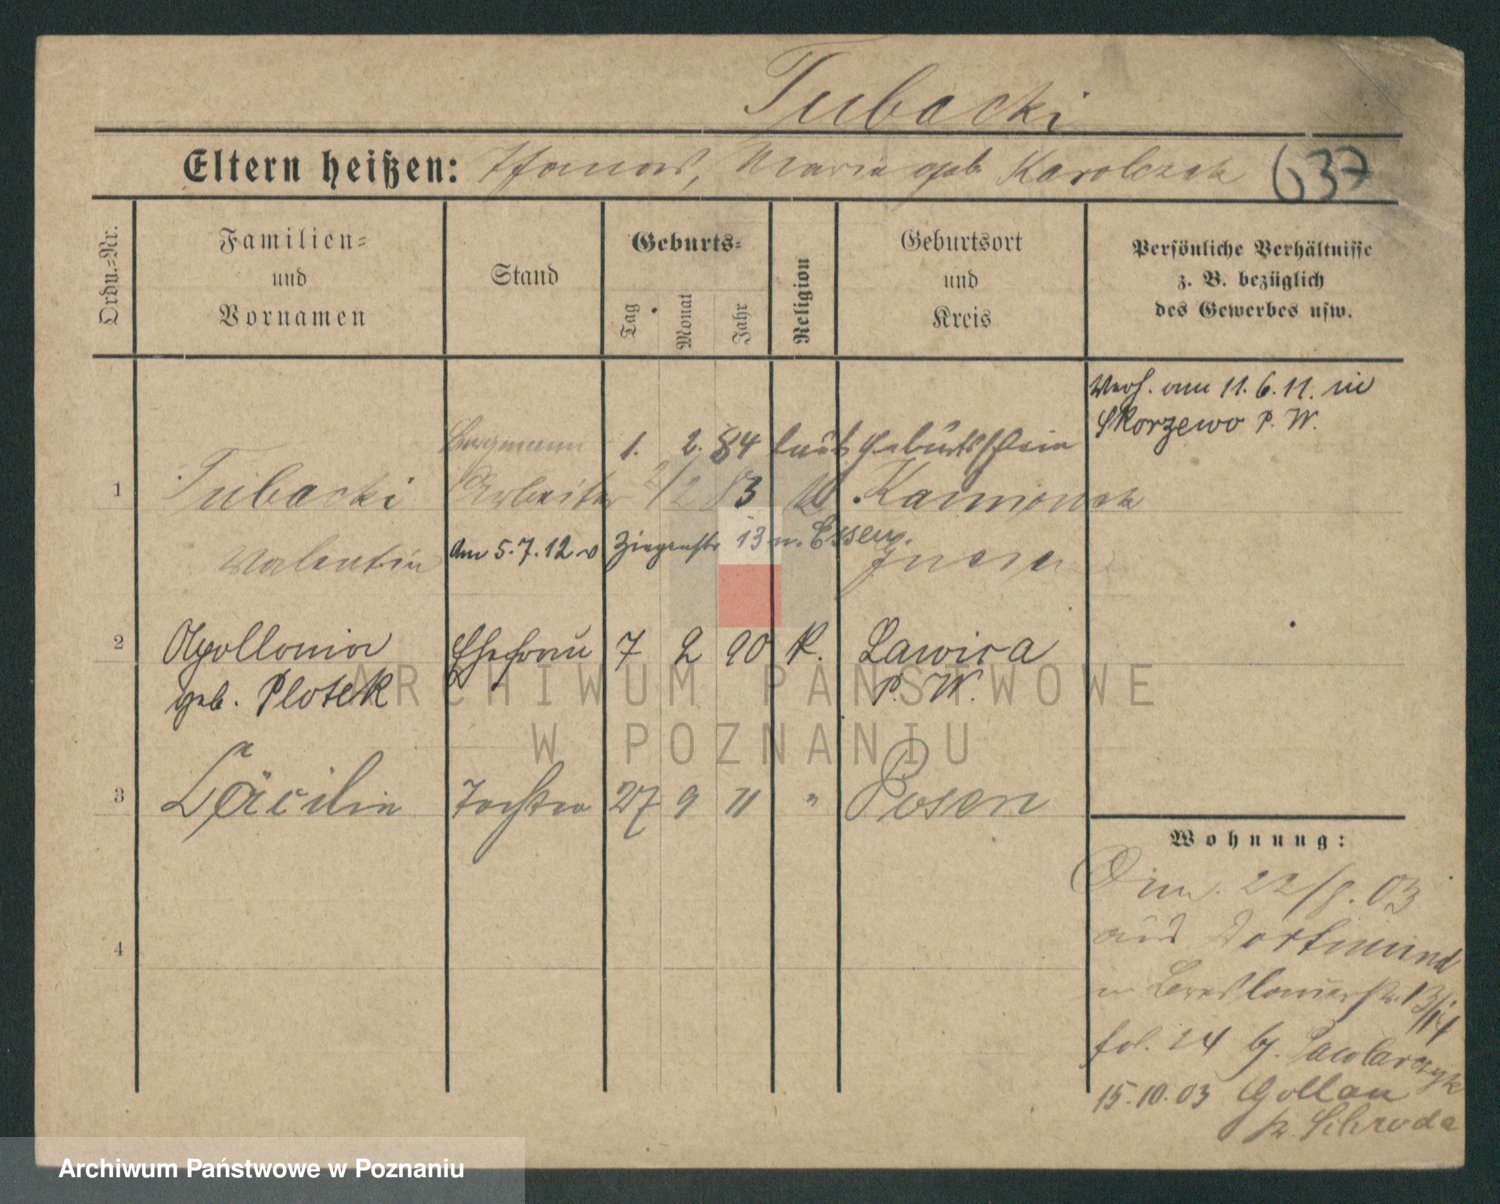 Tubacki
Eltern heißen: Thomas, Maria geb Karolczak 637
Ordn.-Nr.
Familien- und Vornamen
Stand
Geburts-
Tag Monat Jahr
Religion
Geburtsort und Kreis
Persönliche Verhältnisse z. B. bezüglich des Gewerbes usw.
Verh. am 11. 6. 11. in
Skorzewo P. W.
Bergmann 1. 2. 84 laut Geburtsschein
1 Tubacki Arbeiter 2/2 83 K Kamionek
Valentin Am 5.7.12 v Ziegenstr 13 n. Essen.
2 Apollonia Ehefrau 7 2 90 K. Lawica
geb. Plotek P. W.
3 Cäcilie Tochter 27 9 11 " Posen
4
Wohnung:
22/8. 03
aus Dortmund
13/14
fol. 24 bj. Pawlarczyk
15.10.03 Gollau
Kr. Schroda
ARCHIWUM PAŃSTWOWE
W POZNANIU
Archiwum Państwowe w Poznaniu